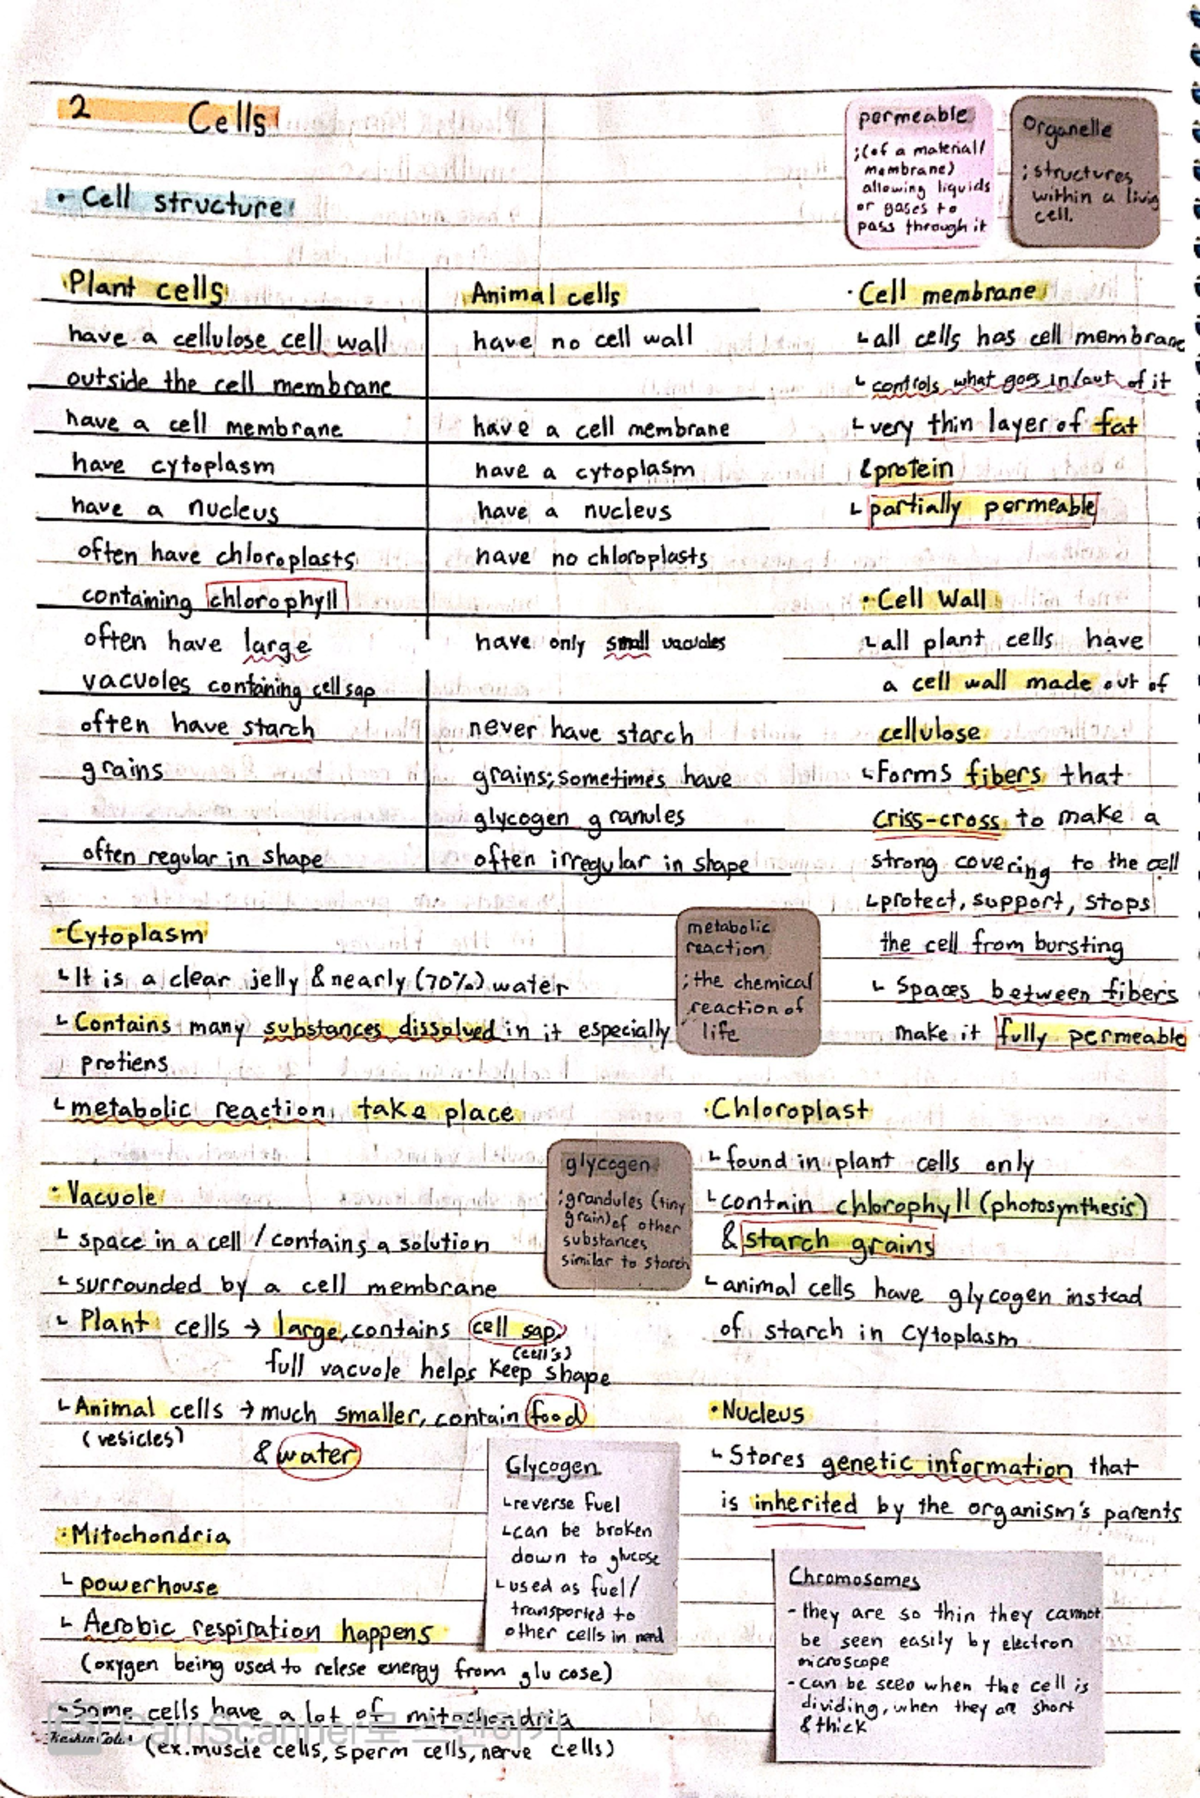 2 Cells
permeable
;(of a material/
membrane)
allowing liquids
or gases to
pass through it
Organelle
; structures
within a living
cell.
· Cell structure
Plant cells
Animal cells
have a cellulose cell wall
have no cell wall
outside the cell membrane
have a cell membrane
have a cell membrane
have cytoplasm
have a cytoplasm
have a nucleus
have a nucleus
often have chloroplasts
have no chloroplasts
containing chlorophyll
often have large
have only small vacuoles
vacuoles containing cell sap
often have starch
never have starch
grains
grains; sometimes have
glycogen granules
often regular in shape
often irregular in shape
· Cell membrane
↳ all cells has cell membrane
↳ controls what goes in/out of it
↳ very thin layer of fat
& protein
↳ partially permeable
· Cell Wall
↳ all plant cells have
a cell wall made out of
cellulose
↳ Forms fibers that
criss-cross to make a
strong covering to the cell
↳ protect, support, stops
the cell from bursting
↳ Spaces between fibers
make it fully permeable
· Cytoplasm
↳ It is a clear jelly & nearly (70%) water
↳ Contains many substances dissolved in it especially
protiens
↳ metabolic reaction take place
metabolic
reaction
; the chemical
reaction of
life
· Vacuole
↳ space in a cell / contains a solution
↳ surrounded by a cell membrane
↳ Plant cells → large, contains cell sap
(cell's)
full vacuole helps keep shape
↳ Animal cells → much smaller, contain food
(vesicles)
& water
glycogen
; grandules (tiny
grain) of other
substances
similar to starch
· Chloroplast
↳ found in plant cells only
↳ contain chlorophyll (photosynthesis)
& starch grains
↳ animal cells have glycogen instead
of starch in cytoplasm
· Nucleus
↳ Stores genetic information that
is inherited by the organism's parents
· Mitochondria
↳ powerhouse
↳ Aerobic respiration happens
(oxygen being used to relese energy from glucose)
↳ Some cells have a lot of mitochondria
(ex. muscle cells, sperm cells, nerve cells)
Glycogen
↳ reverse fuel
↳ can be broken
down to glucose
↳ used as fuel/
transported to
other cells in need
Chromosomes
- they are so thin they cannot
be seen easily by electron
microscope
- can be seen when the cell is
dividing, when they are short
& thick
CS CamScanner로 스캔하기